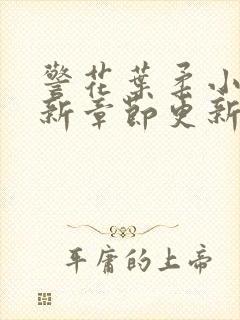 警花葉柔小
新章節更新
平庸的上帝